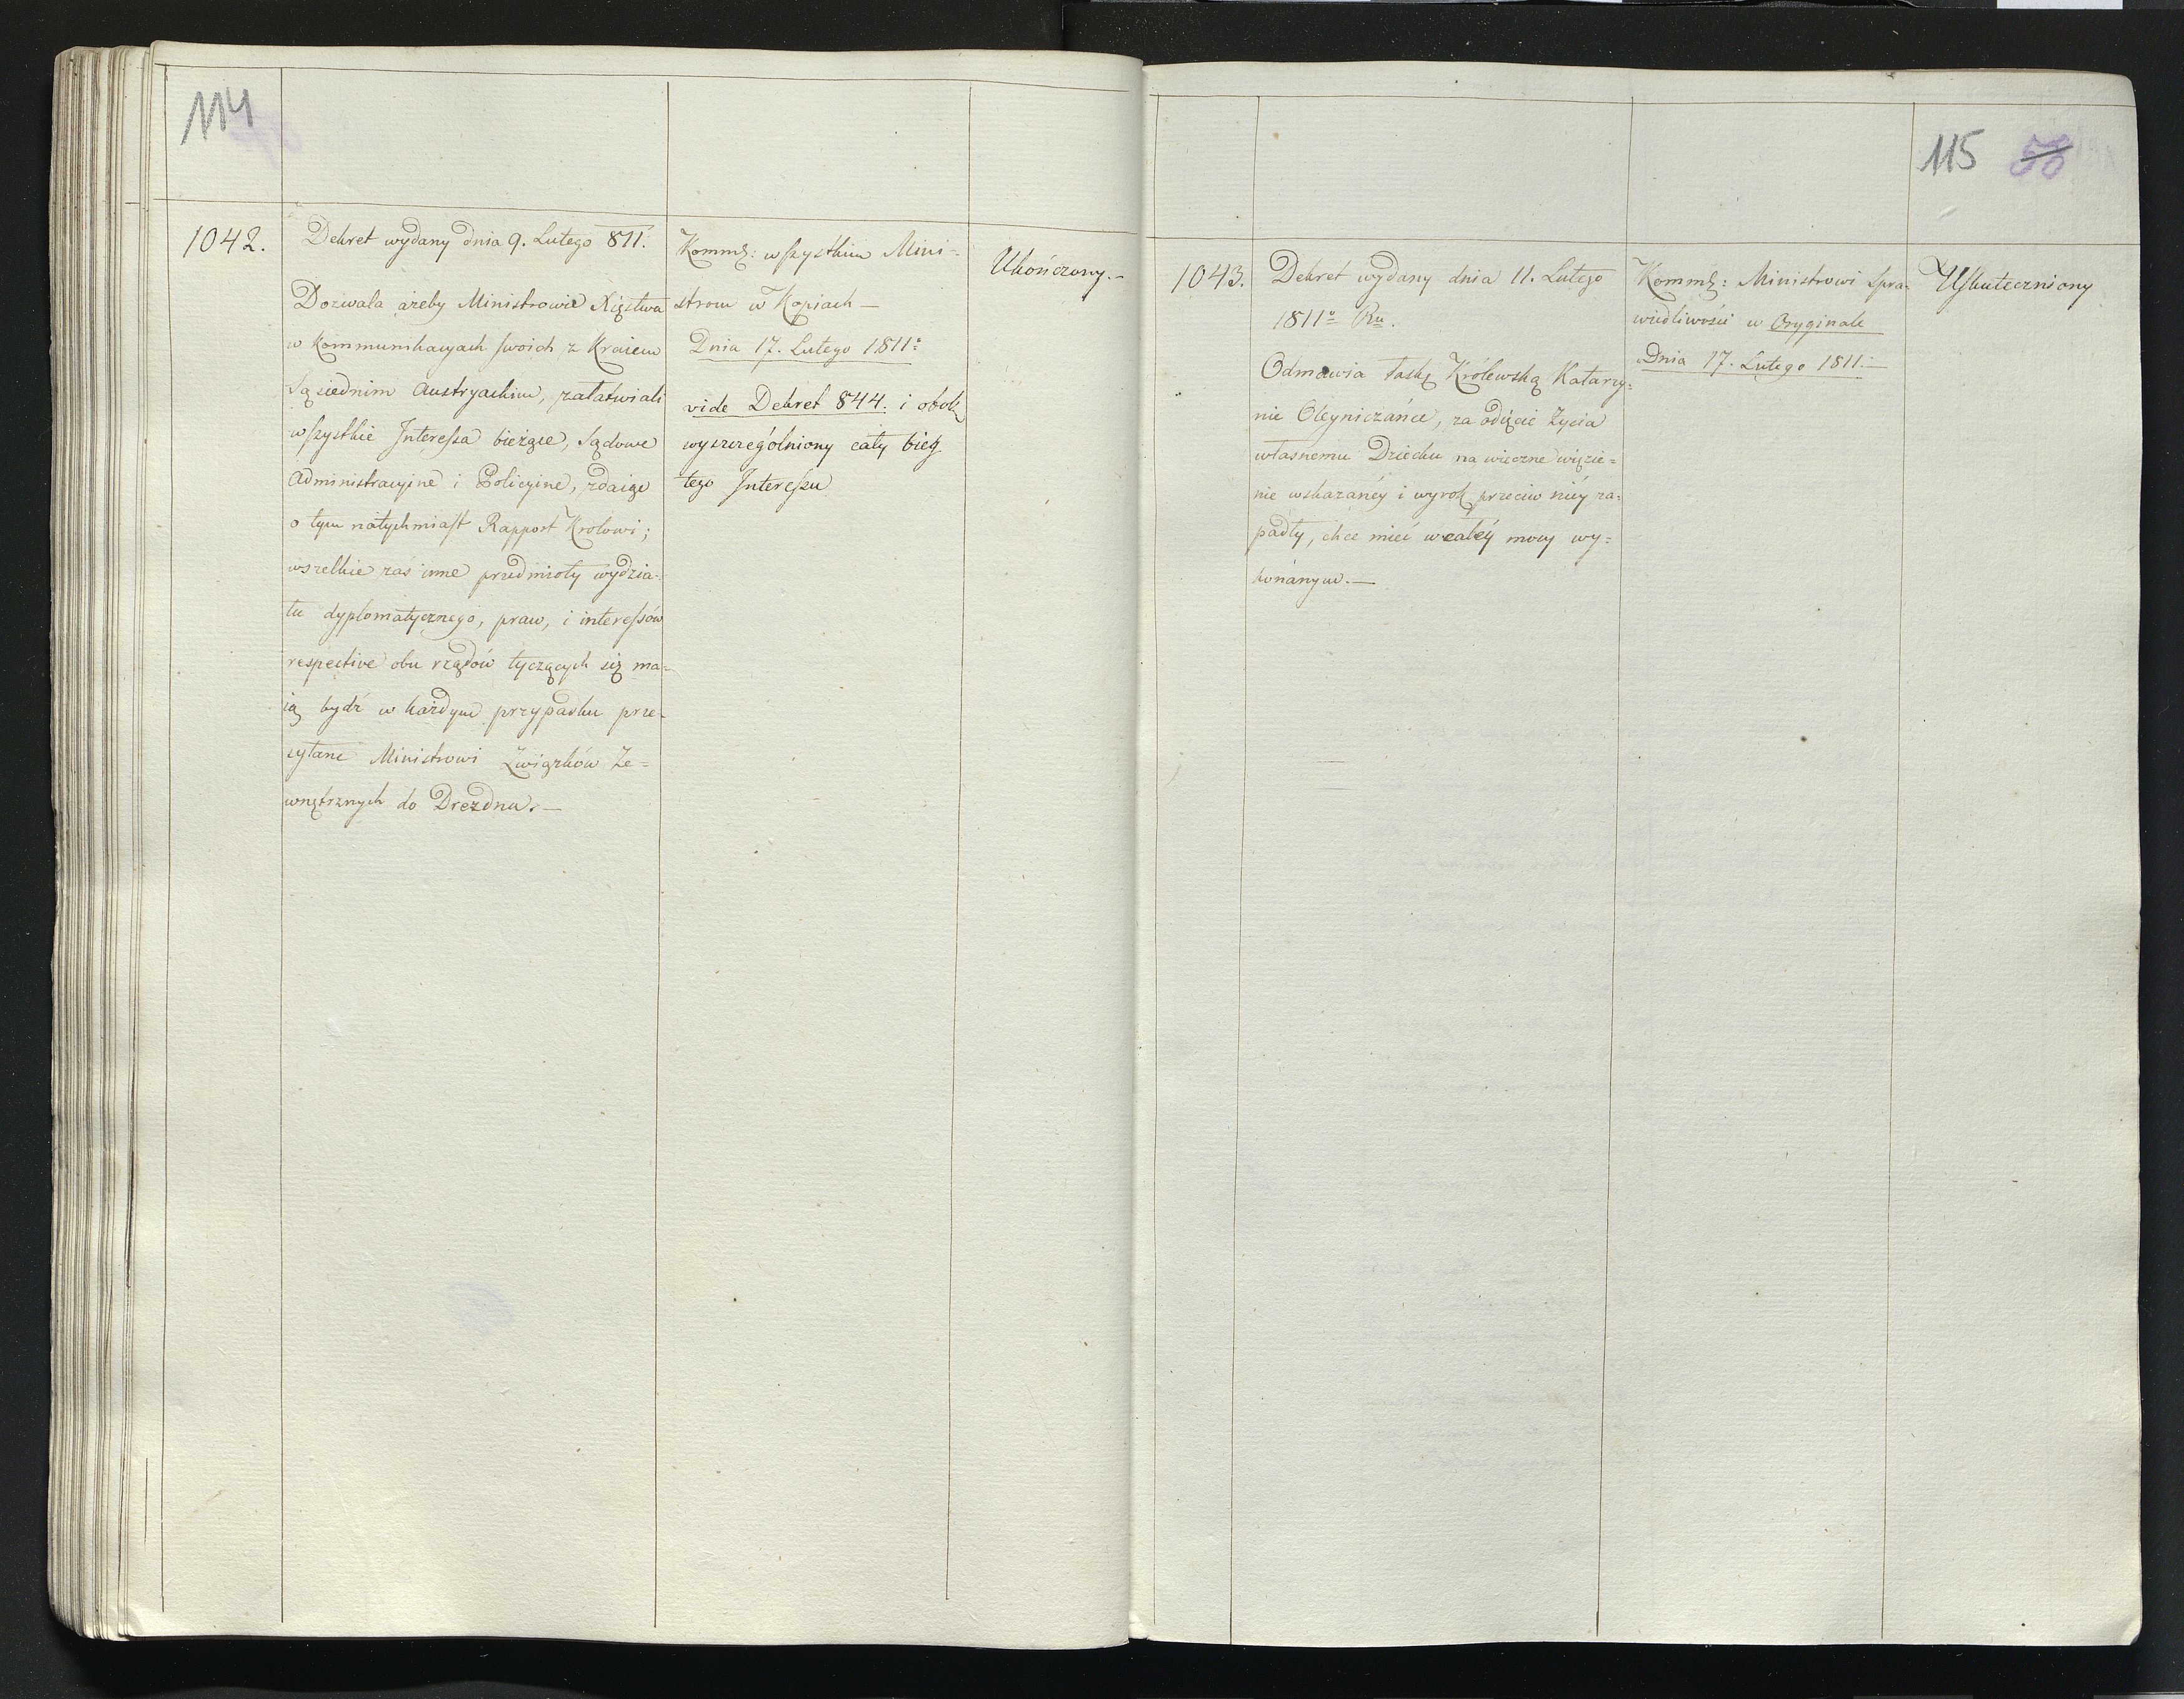 114
1042.
Dekret wydany dnia 9. Lutego 811.
Dozwala ażeby Ministrowie Xięstwa
w kommunikacyach swoich z Kraiem
Sąsiednim Austryackim, załatwiali
wszystkie Interessa bieżące, Sądowe
Administracyine i Policyine, zdaiąc
o tym natychmiast Rapport Krolowi;
wszelkie zaś inne przedmioty wydzia-
łu dyplomatycznego, praw, i interessów
respective obu rządów tyczących się ma-
ią bydź w każdym przypadku prze-
syłane Ministrowi Związków Ze-
wnętrznych do Drezdna.—
Komm: wszystkim Mini-
strom w Kopiach—
Dnia 17. Lutego 1811:
vide Dekret 844. i obok
wyszczególniony cały bieg
tego Interessu
Ukończony.-
115 58
1043.
Dekret wydany dnia 11. Lutego
1811º Ru.
Odmawia łaskę Królewską Katarzy-
nie Oleyniczańce, za odięcie życia
własnemu Dziecku na wieczne więzie-
nie wskazanéy i wyrok przeciw niéy za-
padły, chce mieć w całéy mocy wy-
konanym.—
Komm: Ministrowi Spra-
wiedliwości w Oryginale
Dnia 17. Lutego 1811.—
Uskuteczniony